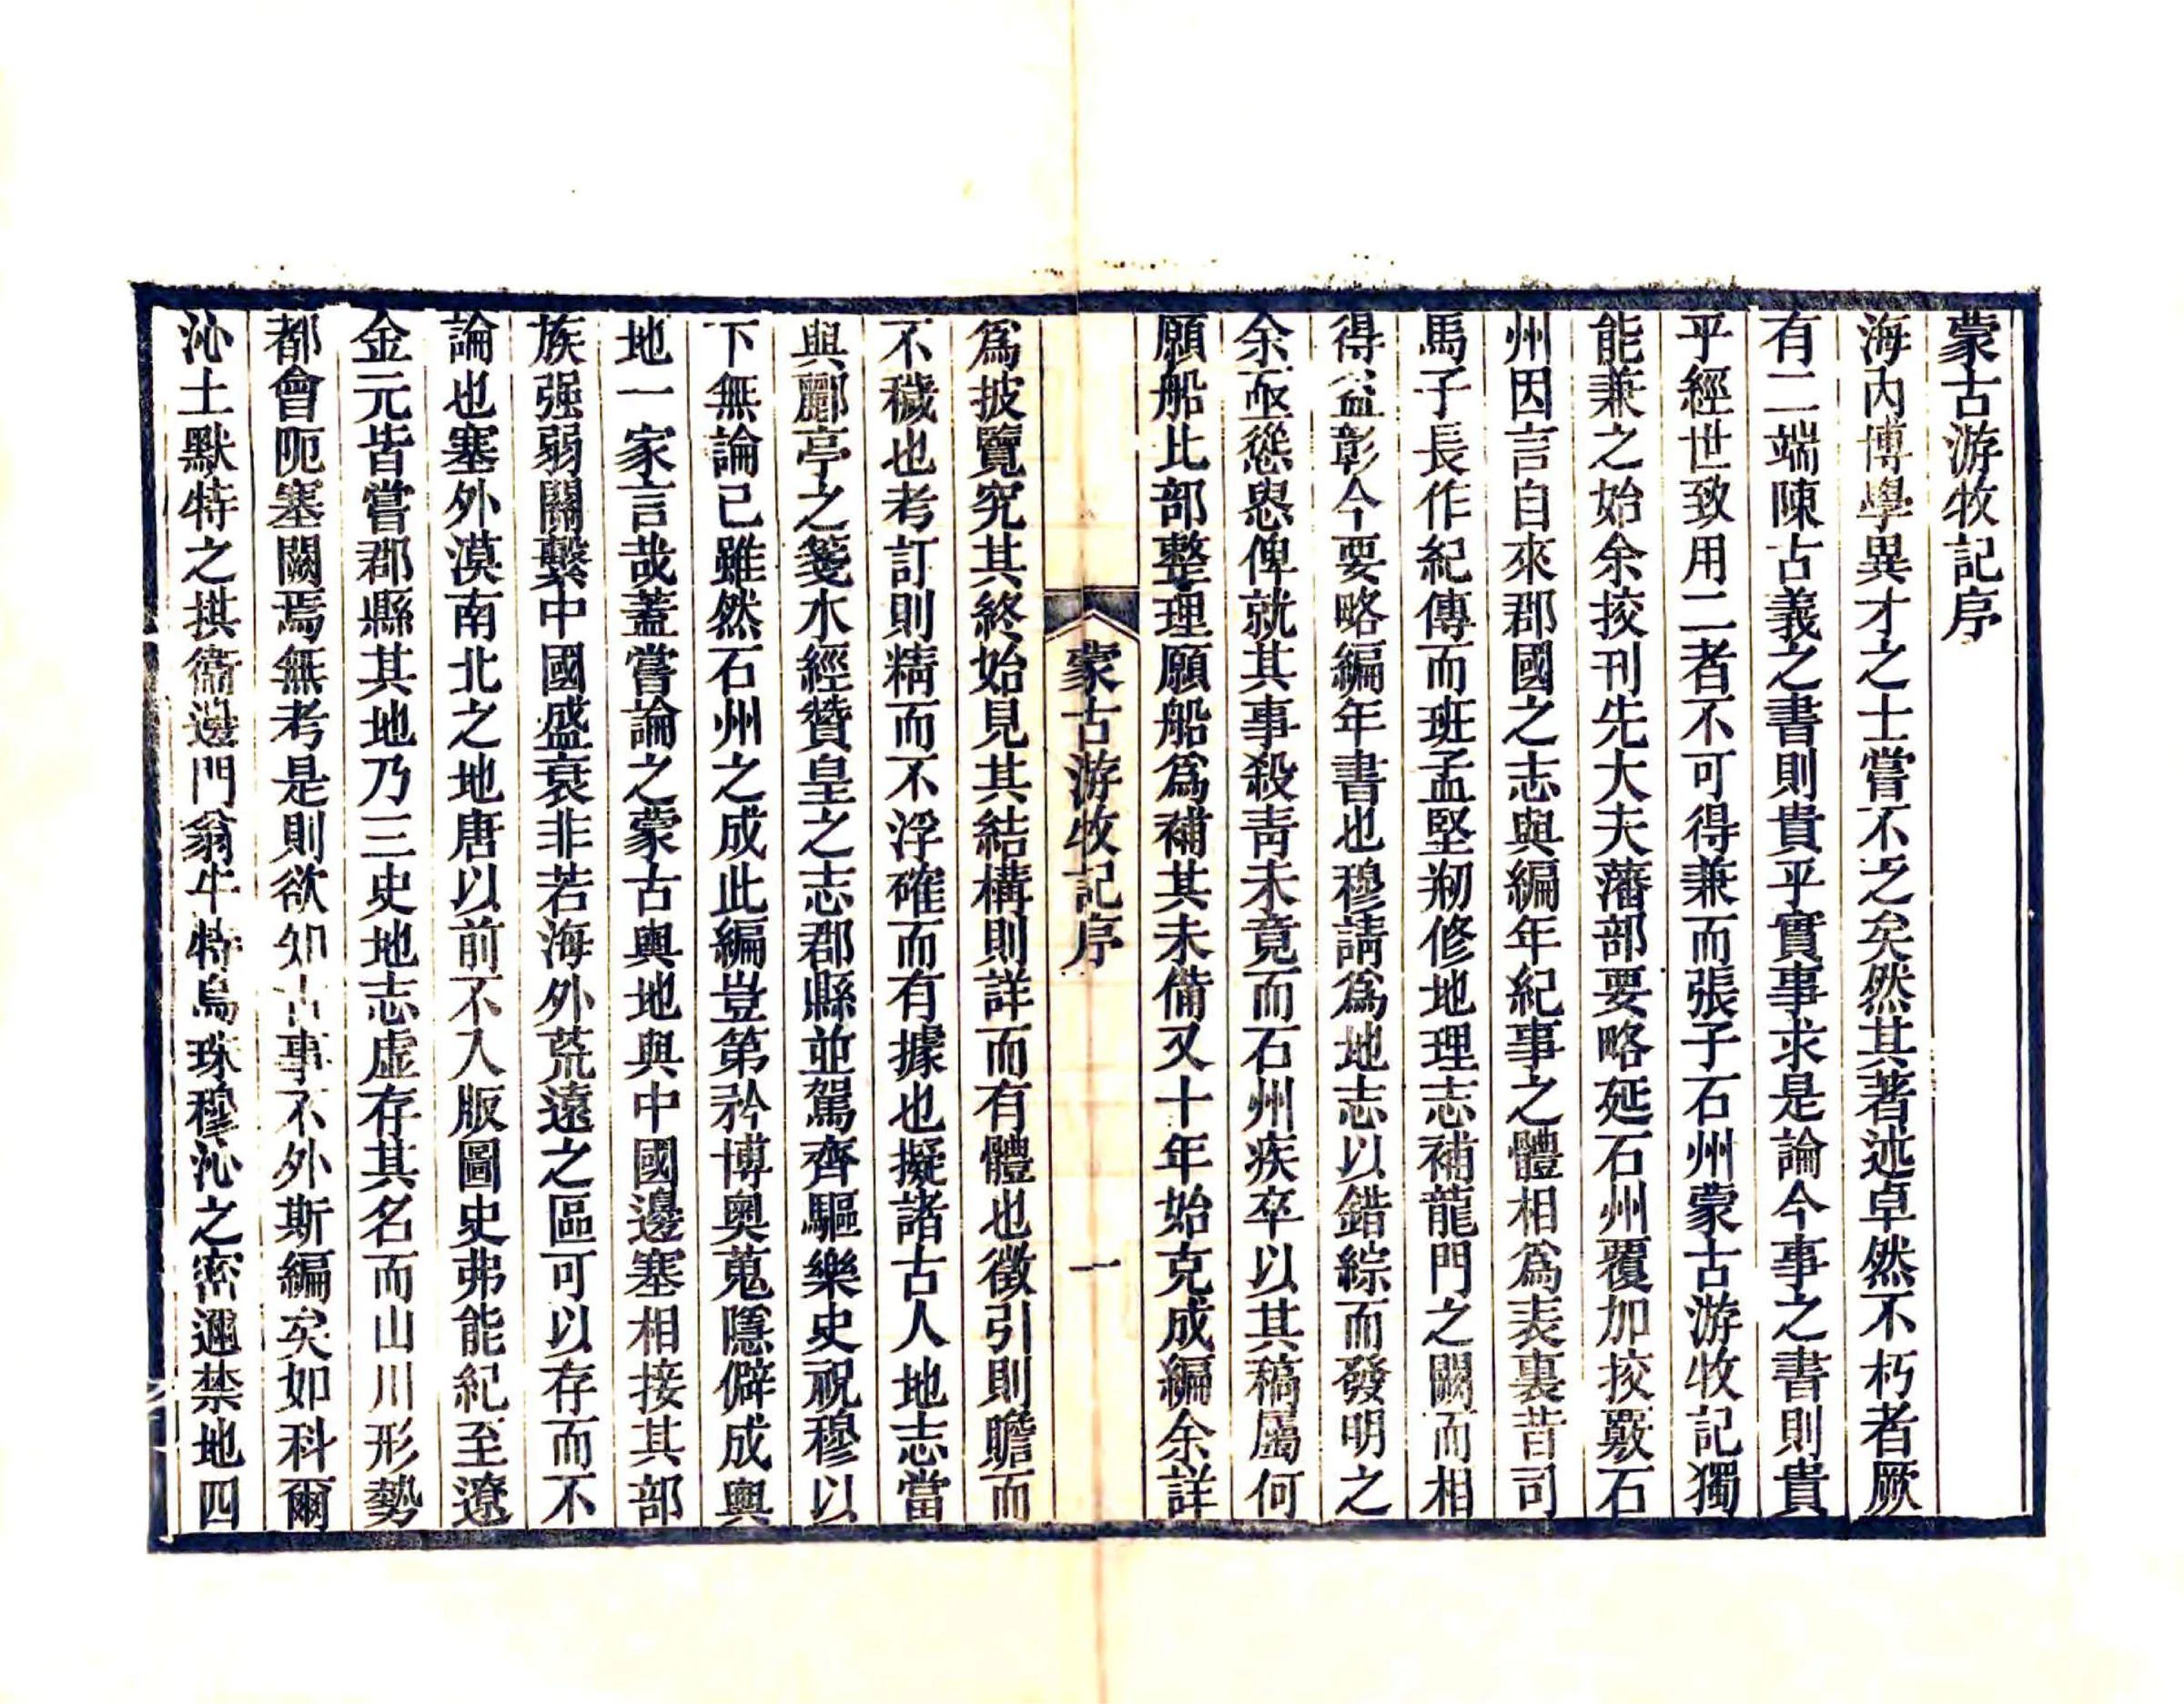 蒙古游牧記序
海內博學異才之士嘗不乏矣然其著述卓然不朽者厥
有二端陳古義之書則貴乎實事求是論今事之書則貴
乎經世致用二者不可得兼而張子石州蒙古游牧記獨
能兼之始余挍刊先大夫藩部要略延石州覆加挍覈石
州因言自來郡國之志與編年紀事之體相爲表裏昔司
馬子長作紀傳而班孟堅剏修地理志補龍門之闕而相
得益彰今要略編年書也穆請爲地志以錯綜而發明之
余亟慫恿俾就其事殺靑未竟而石州疾卒以其稿屬何
願船比部整理願船爲補其未備又十年始克成編余詳
蒙古游牧記序 一
爲披覽究其終始見其結構則詳而有體也徵引則贍而
不穢也考訂則精而不浮確而有據也擬諸古人地志當
與酈亭之箋水經贊皇之志郡縣並駕齊驅樂史祝穆以
下無論已雖然石州之成此編豈第矜博奧蒐隱僻成輿
地一家言哉蓋嘗論之蒙古輿地與中國邊塞相接其部
族强弱關繫中國盛衰非若海外荒遠之區可以存而不
論也塞外漠南北之地唐以前不入版圖史弗能紀至遼
金元皆嘗郡縣其地乃三史地志虛存其名而山川形勢
都會阨塞闕焉無考是則欲知古事不外斯編矣如科爾
沁土默特之拱衞邊門翁牛特烏珠穆沁之密邇禁地四